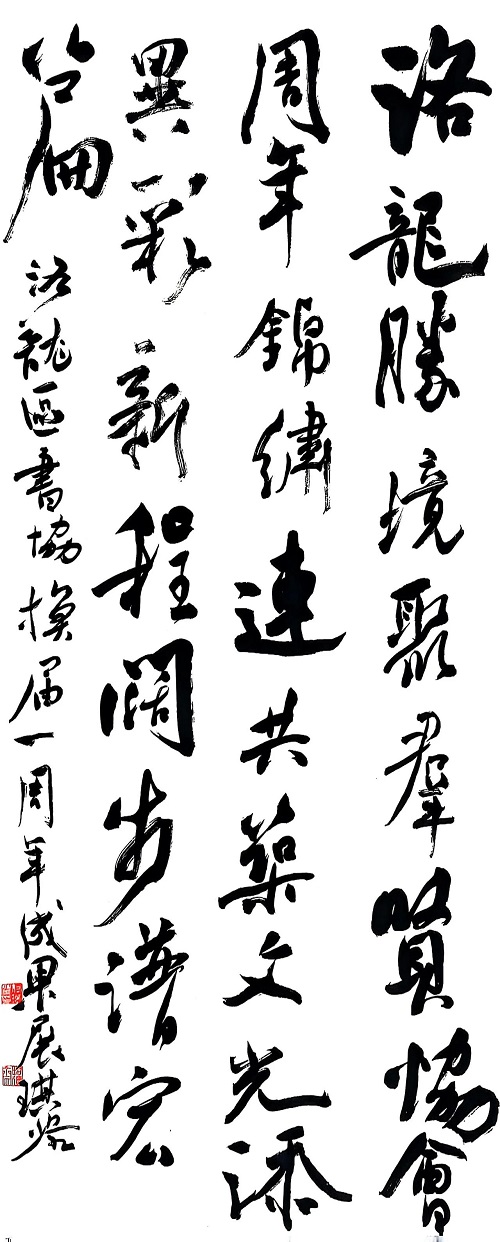 洛龍勝境聚羣賢協會
周年錦繡連共築文光添
異彩新程闊步譜宏
篇
洛龍區書協換届一周年成果展琪